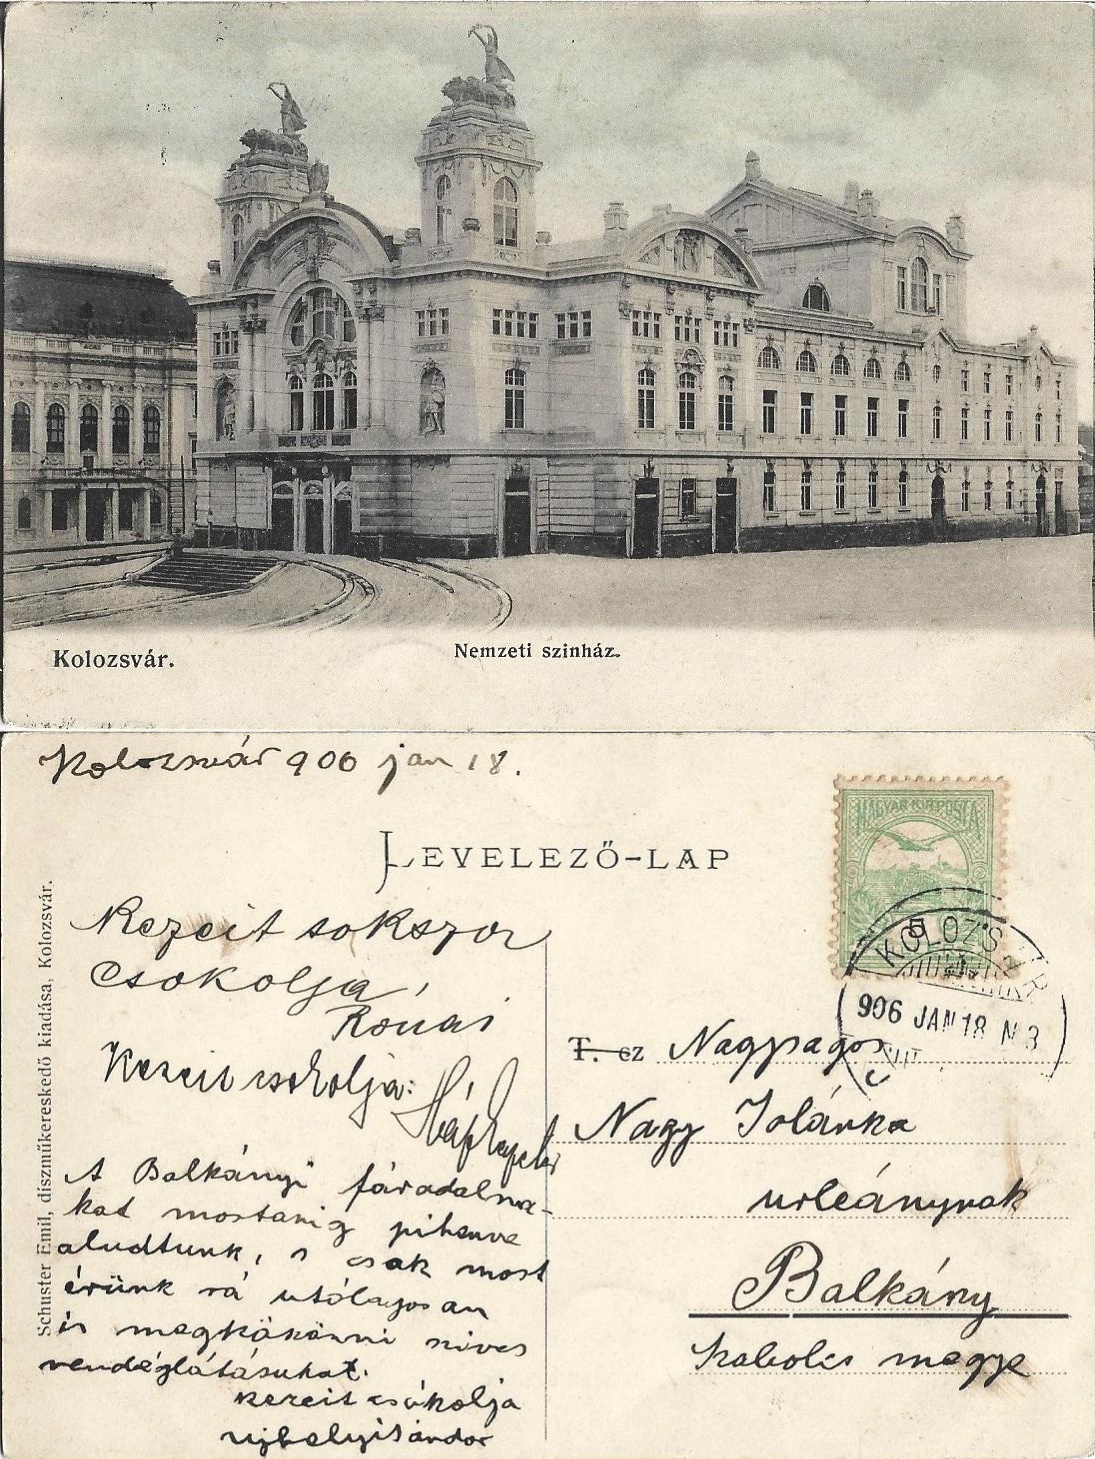 Kolozsvár.
Nemzeti szinház.
Kolozsvár 906 jan 18.
LEVELEZŐ-LAP
MAGYAR KIR. POSTA
5
KOLOZSVÁR
906 JAN 18 N 3
Schuster Emil, díszműkereskedő kiadása, Kolozsvár.
Kezeit sokszor
csokolja,
Rónai
Kezeit csokolja:
A Balkányi fáradalma-
kat mostanig pihenve
aludtunk, s csak most
érünk rá utólagosan
is megköszönni szives
vendéglátásukat.
Kezeit csókolja
Ujhelyi Sándor
T. cz Nagyságos
Nagy Jolánka
urleánynak
Balkány
Szabolcs megye